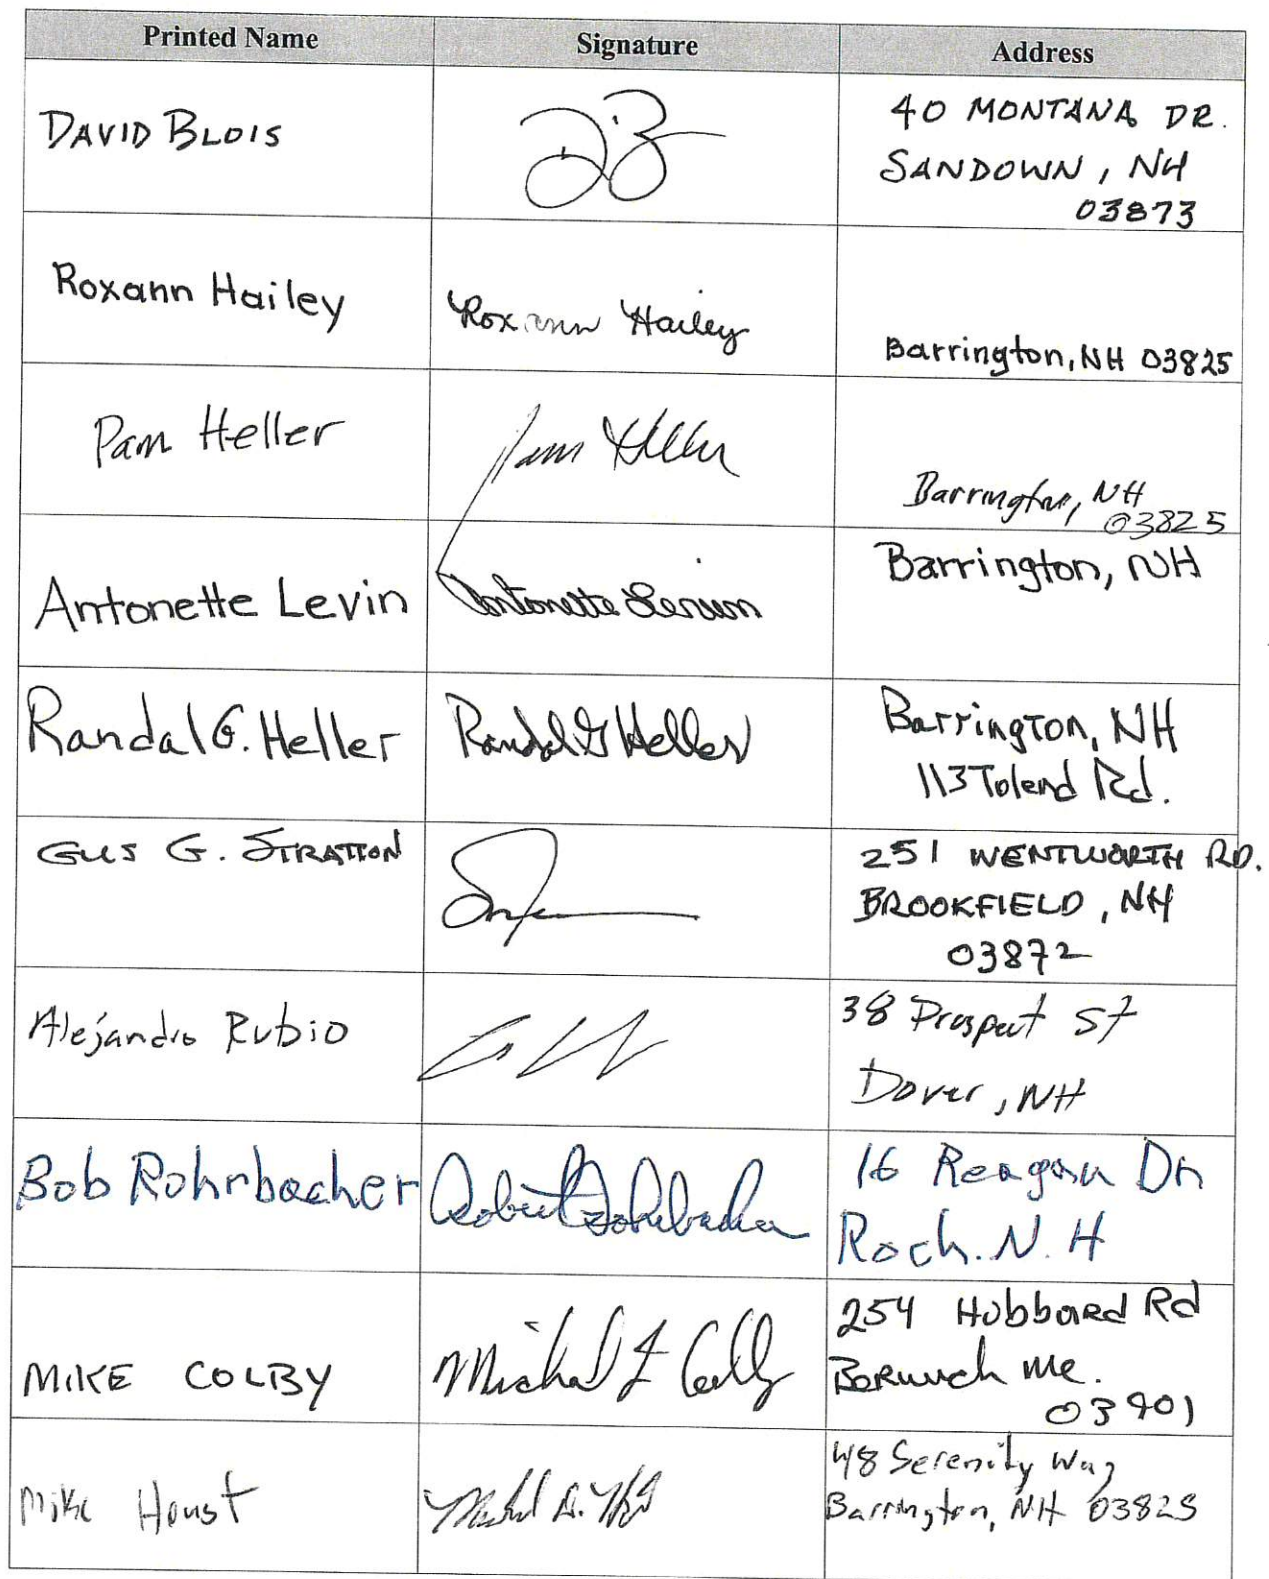 Printed Name Signature Address
DAVID BLOIS
40 MONTANA DR.
SANDOWN, NH
03873
Roxann Hailey Roxann Hailey
Barrington, NH 03825
Pam Heller Pam Heller
Barrington, NH
03825
Antonette Levin Antonette Levin
Barrington, NH
Randal G. Heller Randal G Heller
Barrington, NH
113 Tolend Rd.
GUS G. STRATTON
251 WENTWORTH RD.
BROOKFIELD, NH
03872
Alejandro Rubio
38 Prospect St
Dover, NH
Bob Rohrbacher Robert Rohrbacher
16 Reagan Dr
Roch. N.H
MIKE COLBY Michael J Colby
254 Hubbard Rd
Berwick Me.
03901
Mike Houst
48 Serenity Way
Barrington, NH 03825